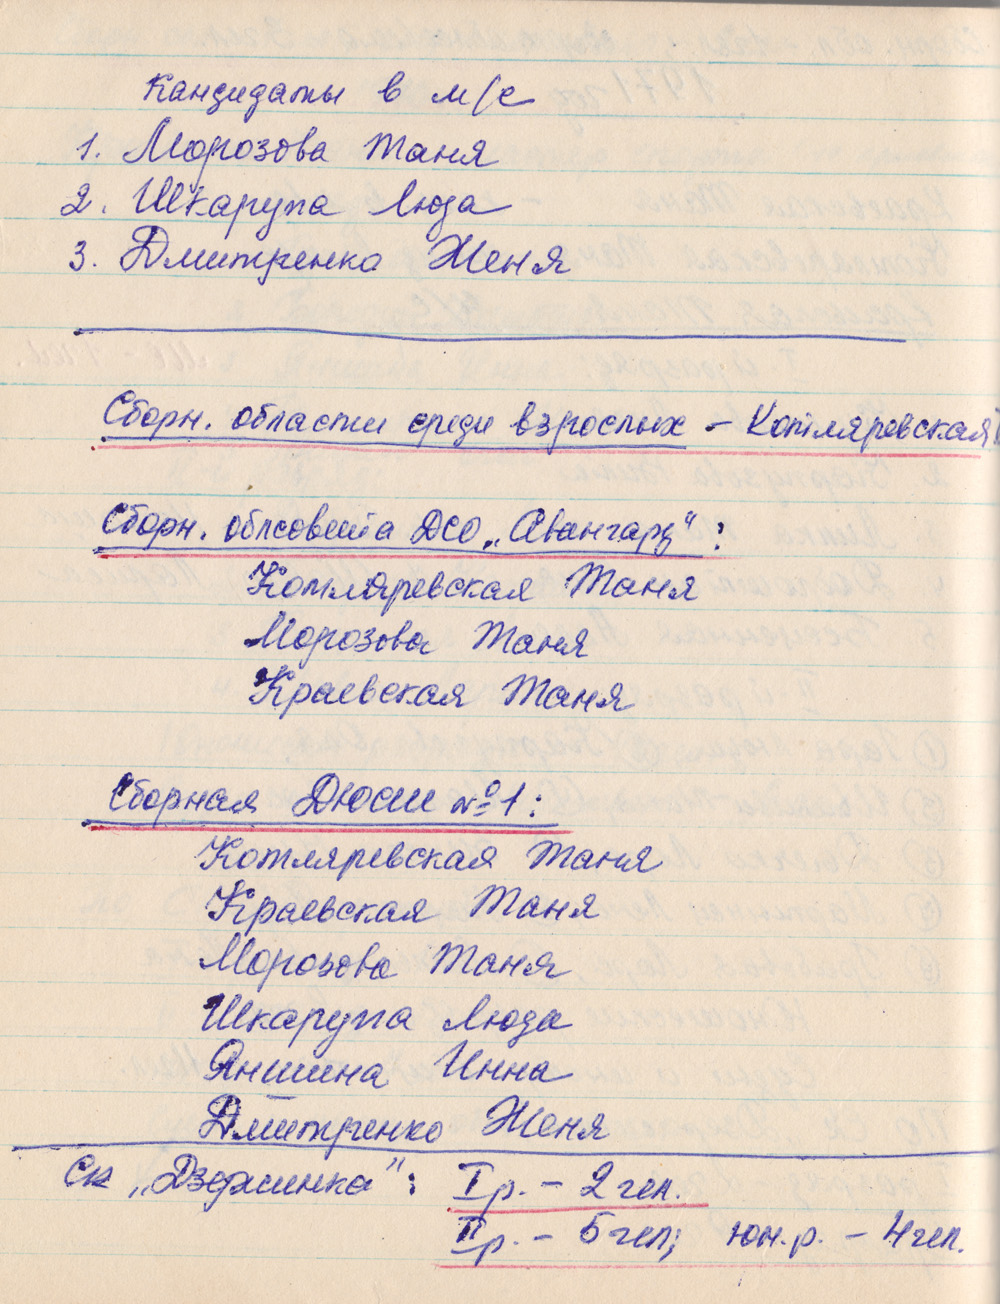 Кандидаты в м/с
1. Морозова Таня
2. Шкарупа Люда
3. Дмитренко Женя
Сборн. области среди взрослых – Котляревская
Сборн. облсовета ДСО „Авангард“:
Котляревская Таня
Морозова Таня
Краевская Таня
Сборная ДЮСШ №1:
Котляревская Таня
Краевская Таня
Морозова Таня
Шкарупа Люда
Яншина Инна
Дмитренко Женя
Ск „Дзержинка“: I р. – 2 чел.
II р. – 5 чел; юн.р. – 4 чел.